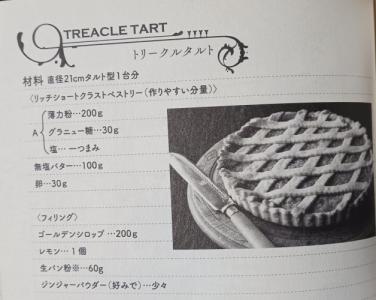 TREACLE TART
トリークルタルト
材料 直径21cmタルト型1台分
〈リッチショートクラストペストリー(作りやすい分量)〉
薄力粉…200g
A グラニュー糖…30g
塩… 一つまみ
無塩バター…100g
卵…30g
〈フィリング〉
ゴールデンシロップ …200g
レモン…1個
生パン粉※…60g
ジンジャーパウダー(好みで)…少々